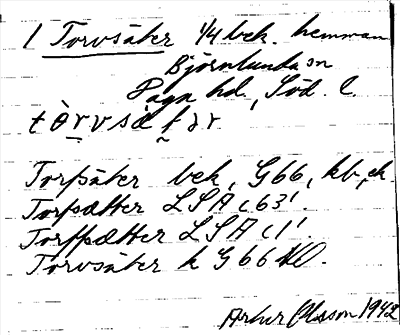 1 Torvsäter 1/4 bek. hemman
Björnlunda sn
Daga hd, Söd. l.
Torpsäter bek, G66, kb, ek.
Torpsætter LSA c63'.
Torppætter LSA c1'.
Torvsäter k G66 Kl.
Arthur Olsson 1942